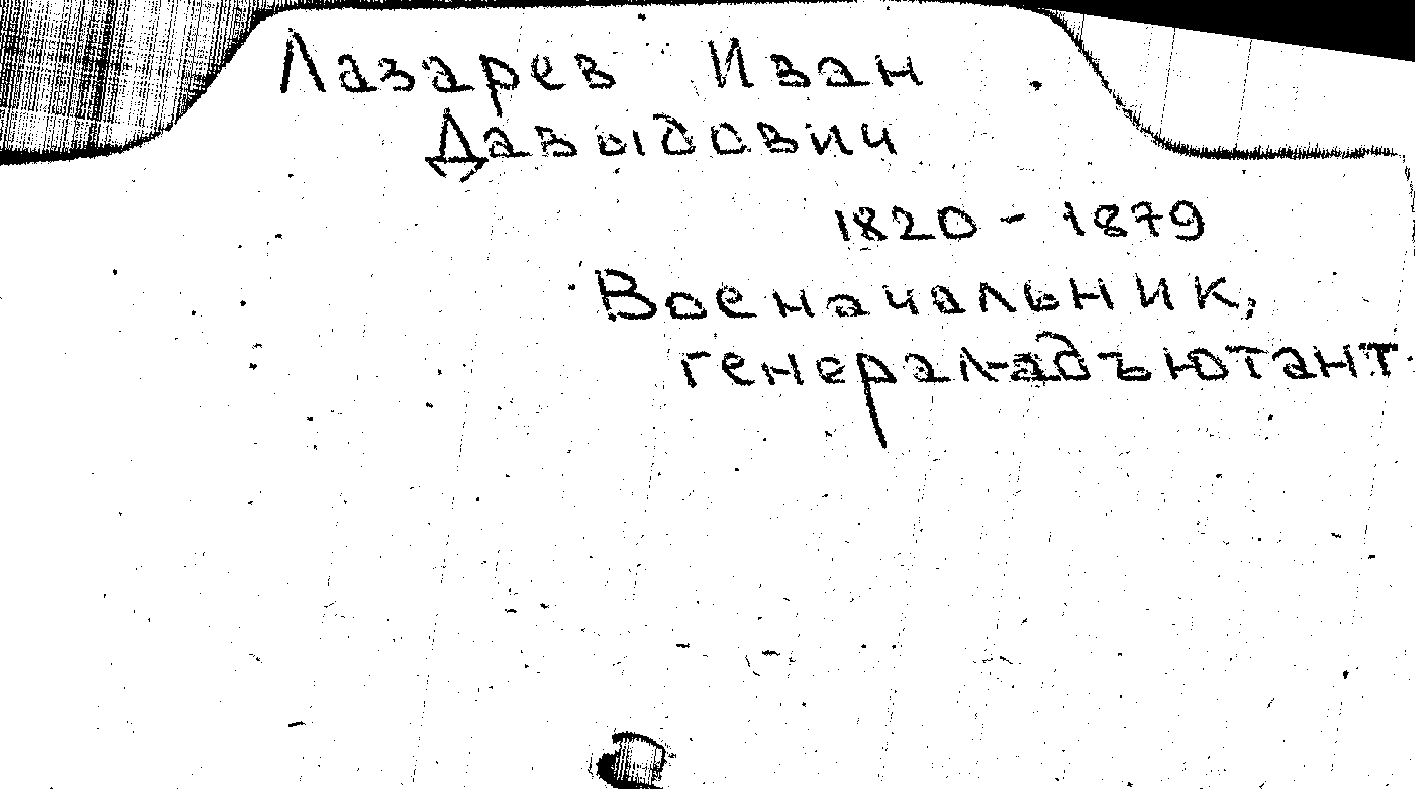 Лазарев Иван
Давыдович
1820 - 1879
Военачальник,
генерал-адъютант.